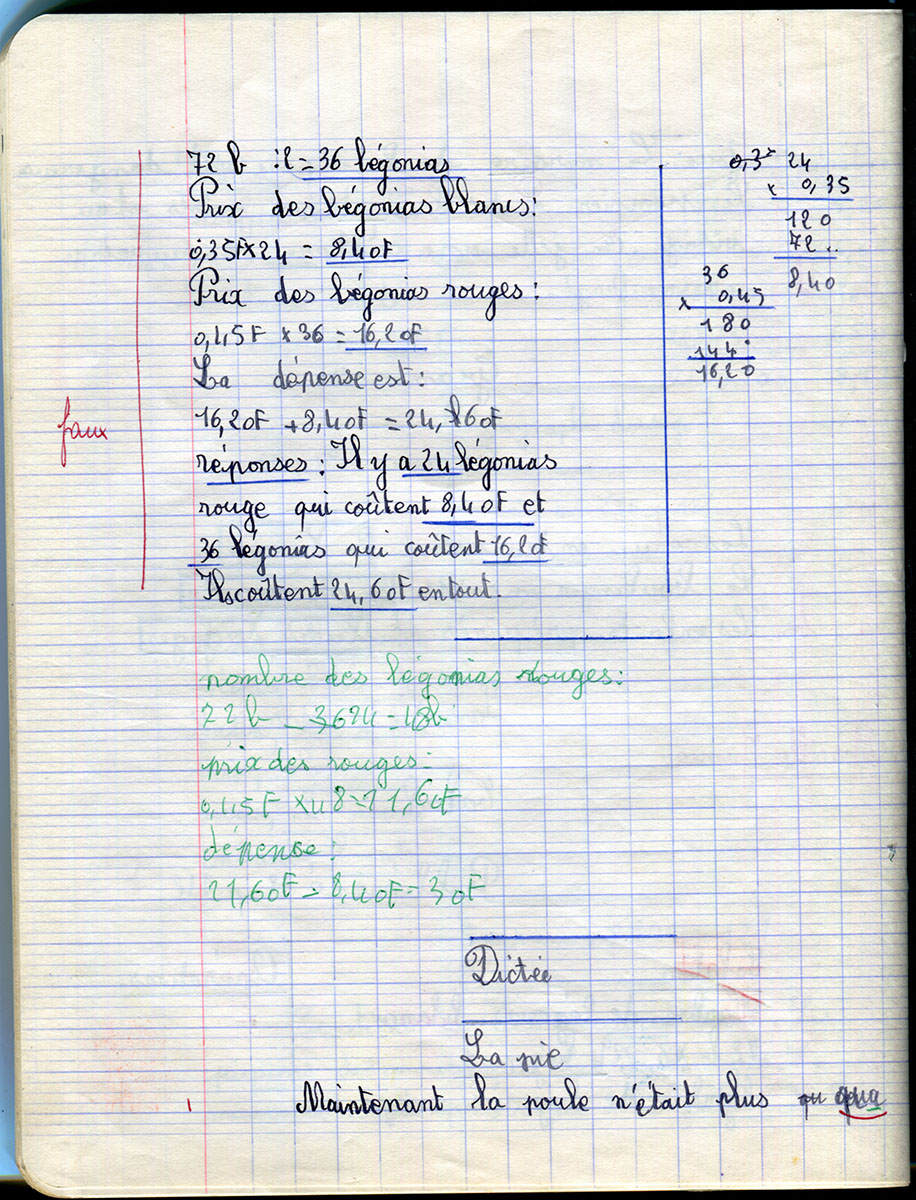 72 b : 2 = 36 bégonias
Prix des bégonias blancs :
0,35F × 24 = 8,40F
Prix des bégonias rouges :
0,45F × 36 = 16,20F
La dépense est :
16,20F + 8,40F = 24,60F
réponses : Il y a 24 bégonias
rouge qui coûtent 8,40F et
36 bégonias qui coûtent 16,20F
Ils coûtent 24,60F entout.
faux
24
× 0,35
120
72..
8,40
36
× 0,45
180
144.
16,20
nombre des bégonias rouges :
72 b - 24 = 48b
prix des rouges :
0,45F × 48 = 21,60F
dépense :
21,60F + 8,40F = 30F
Dictée
La pie
Maintenant la poule n'était plus qu qua